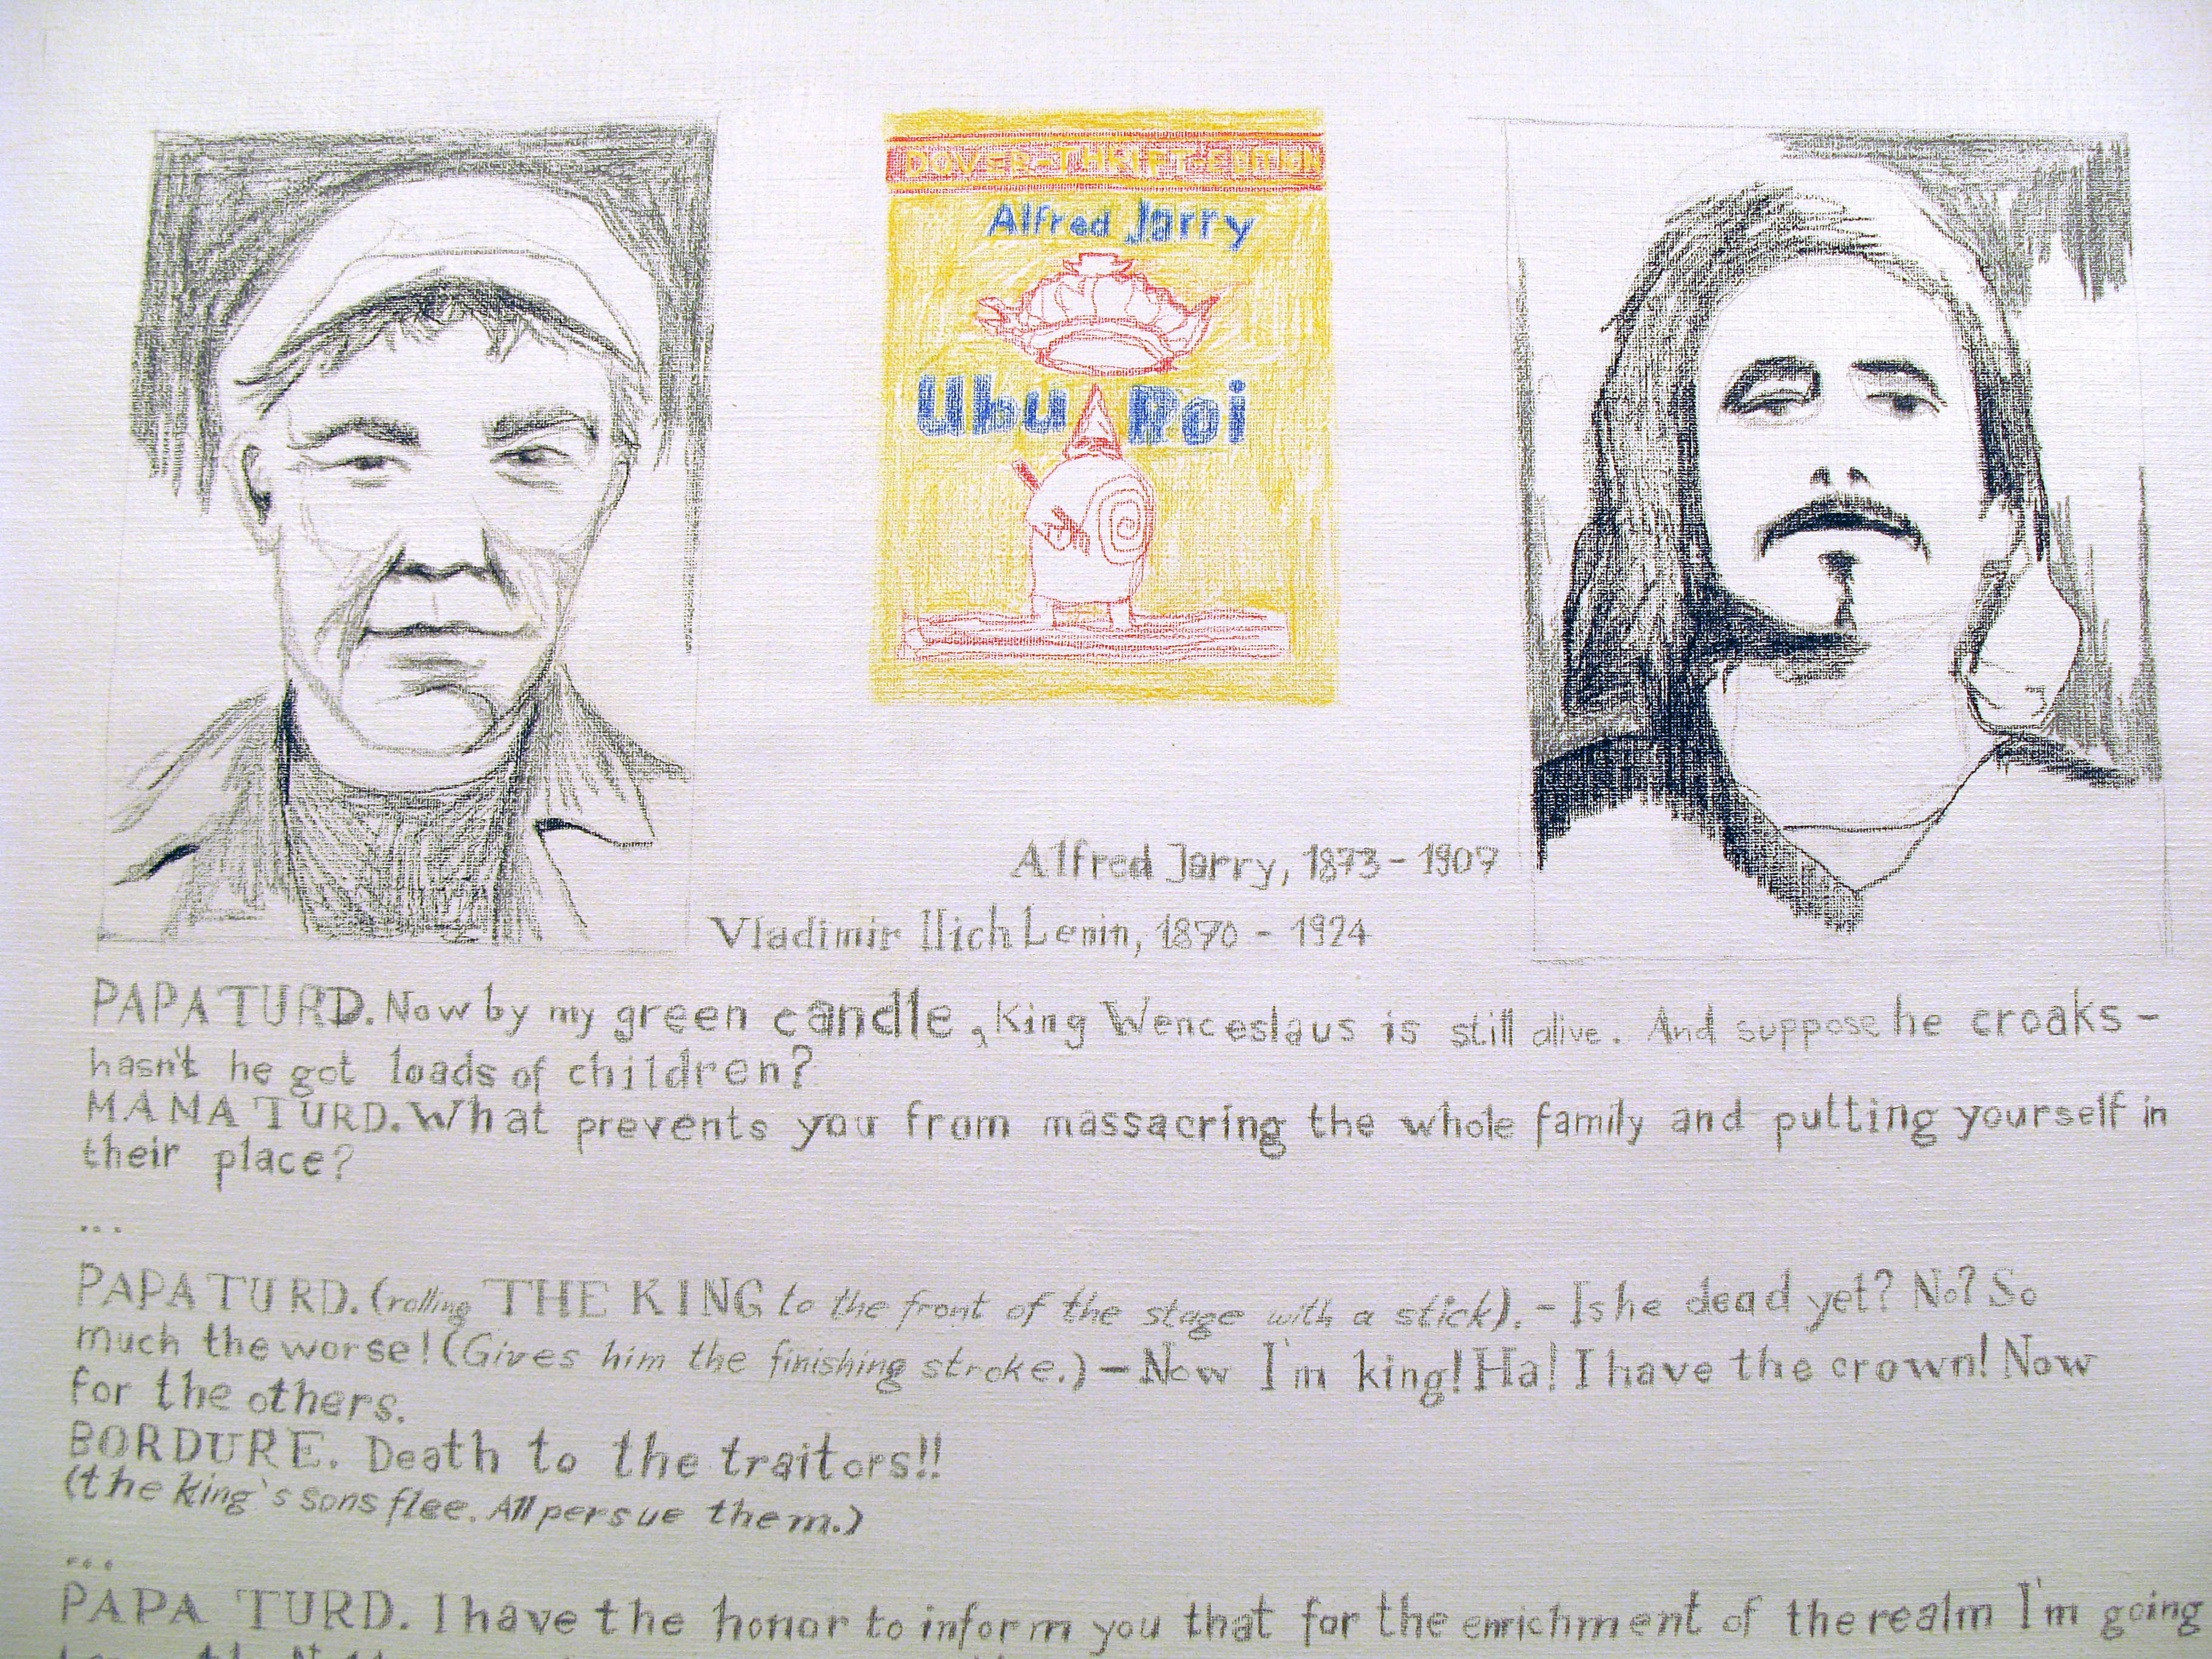 DOVER-THRIFT-EDITION
Alfred Jarry
Ubu Roi
Alfred Jarry, 1873 - 1907
Vladimir Ilich Lenin, 1870 - 1924
PAPA TURD. Now by my green candle, King Wenceslaus is still alive. And suppose he croaks -
hasn't he got loads of children?
MAMA TURD. What prevents you from massacring the whole family and putting yourself in
their place?
...
PAPA TURD. (rolling THE KING to the front of the stage with a stick). - Is he dead yet? No? So
much the worse! (Gives him the finishing stroke.) - Now I'm king! Ha! I have the crown! Now
for the others.
BORDURE. Death to the traitors!!
(the king's sons flee. All persue them.)
...
PAPA TURD. I have the honor to inform you that for the enrichment of the realm I'm going